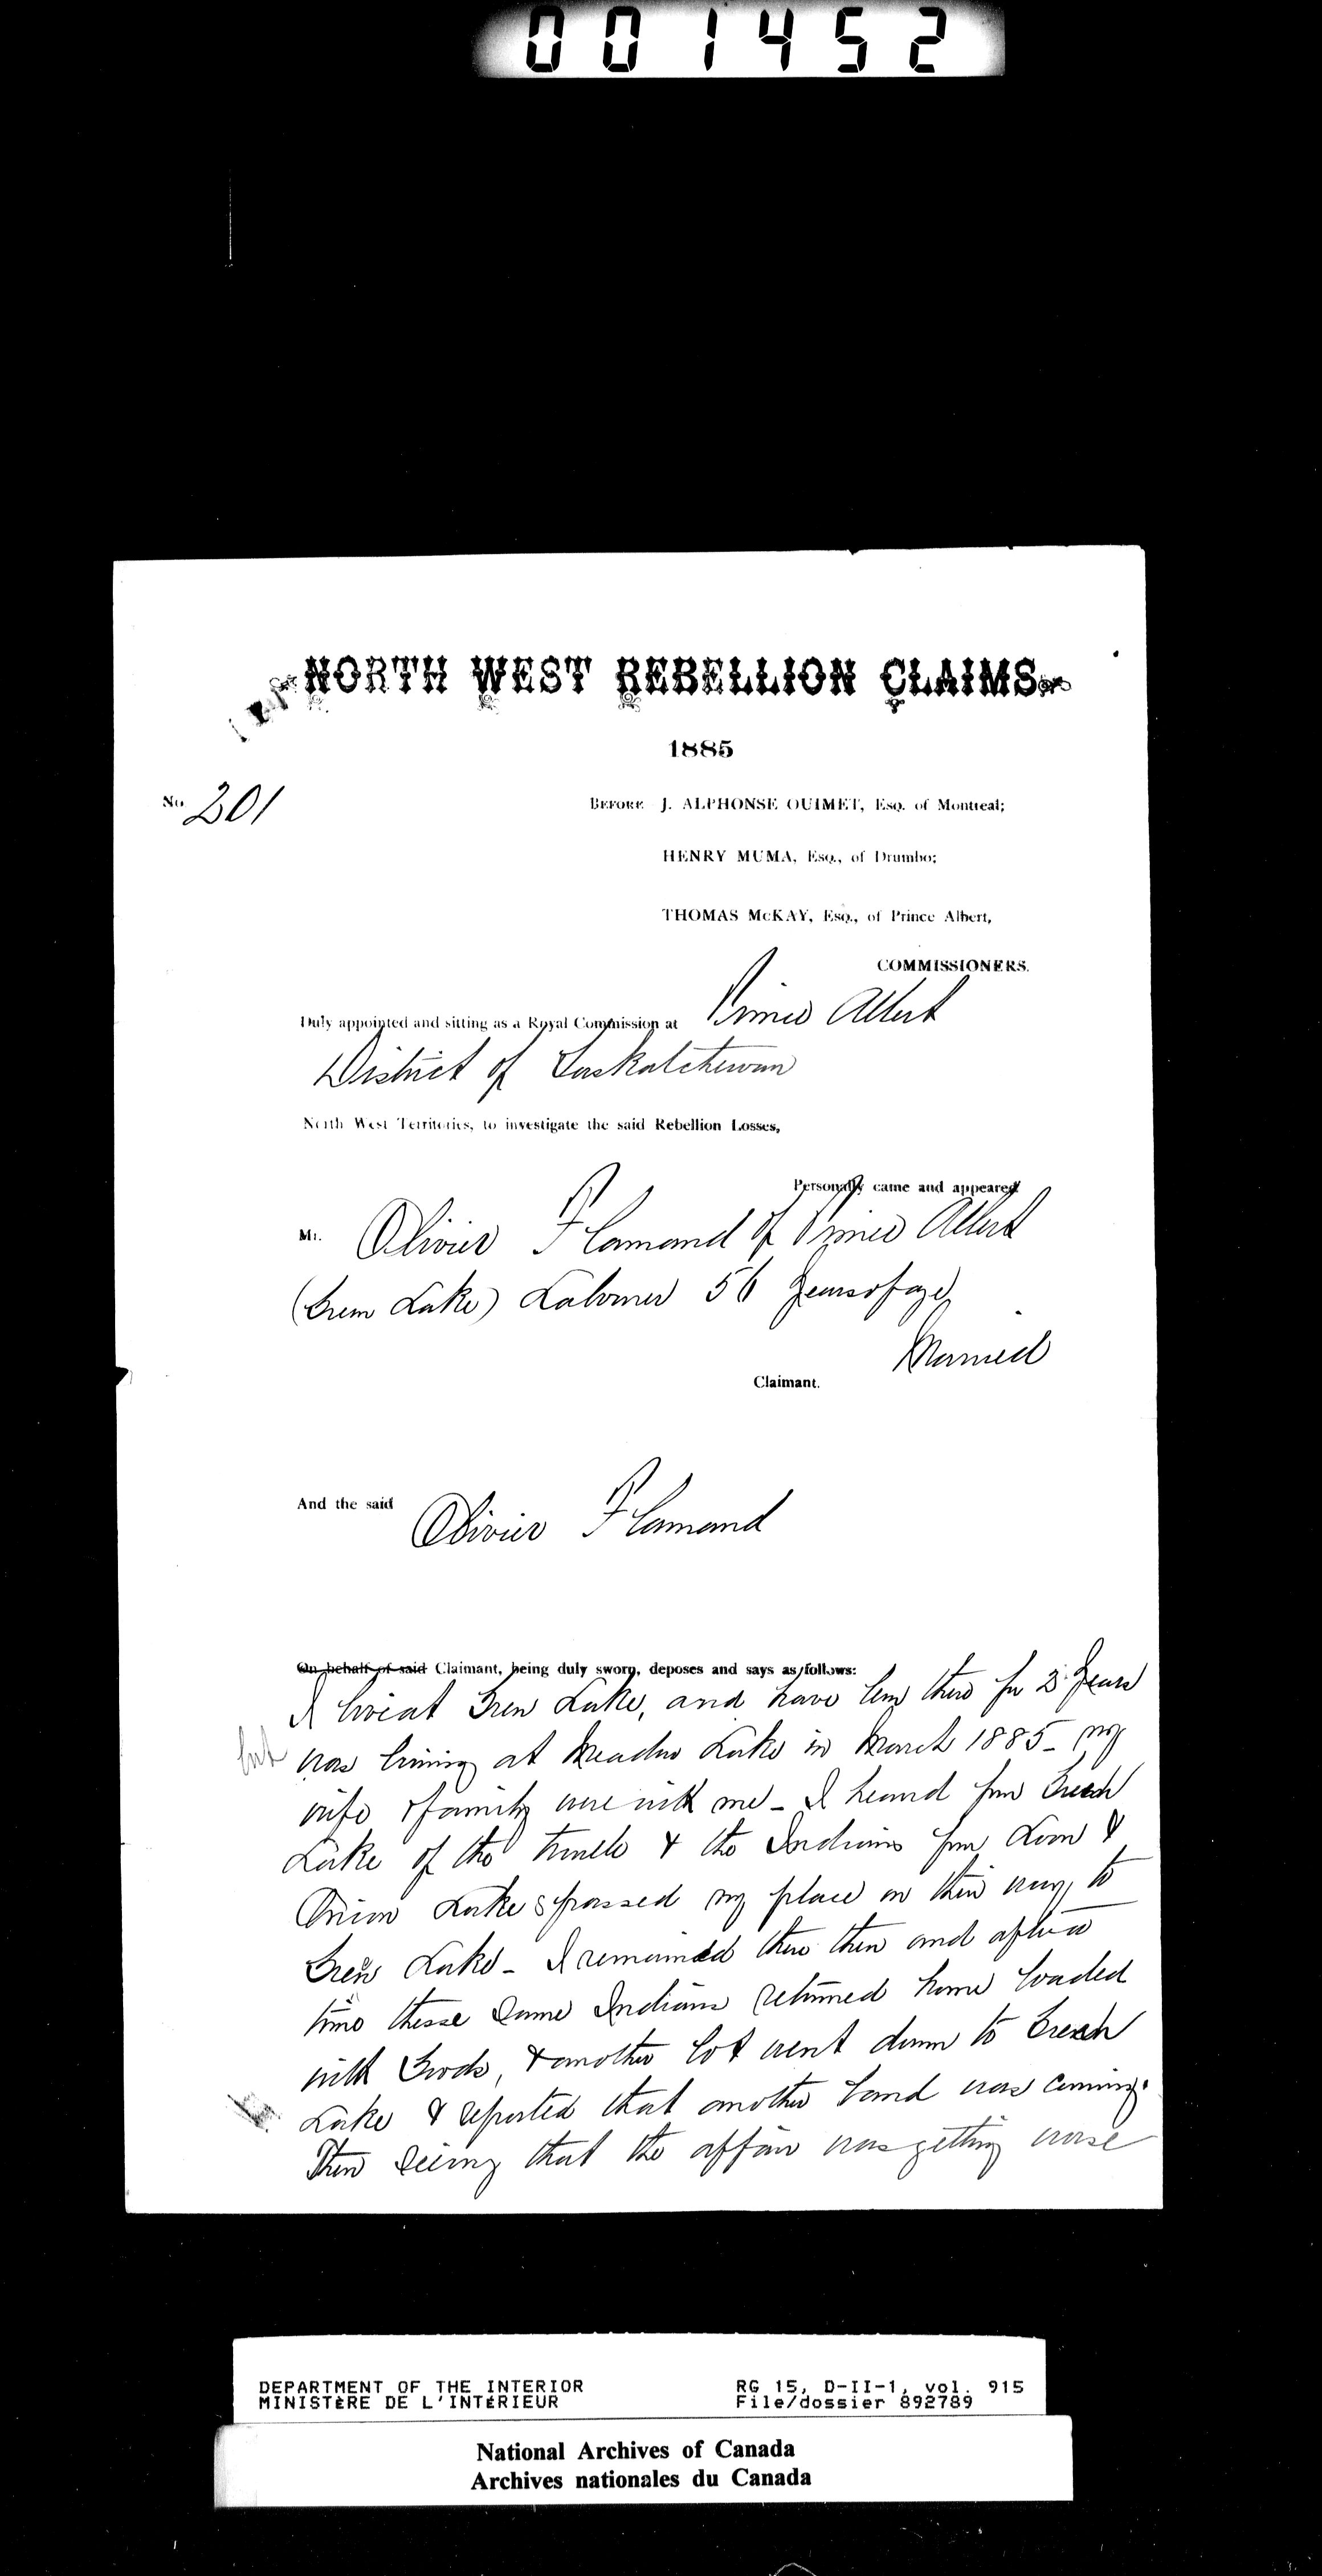 001452
NORTH WEST REBELLION CLAIMS.
1885
No 201
BEFORE J. ALPHONSE OUIMET, Esq. of Montreal;
HENRY MUMA, Esq., of Drumbo;
THOMAS McKAY, Esq., of Prince Albert,
COMMISSIONERS.
Duly appointed and sitting as a Royal Commission at Prince Albert
District of Saskatchewan
North West Territories, to investigate the said Rebellion Losses,
Personally came and appeared
Mr. Olivier Flamand of Prince Albert
(Green Lake) Laborer 56 Years of age,
Married
Claimant.
And the said Olivier Flamand
On behalf of said Claimant, being duly sworn, deposes and says as follows:
I live at Green Lake, and have been there for 2 Years
but was living at Meadow Lake in March 1885 - my
wife & family were with me - I heard from Green
Lake of the trouble & the Indians from Loon &
Onion Lakes passed my place on their way to
Green Lake - I remained there then and after a
time these same Indians returned home loaded
with Goods, & another lot went down to Green
Lake & reported that another band was coming.
Then seeing that the affair was getting worse
DEPARTMENT OF THE INTERIOR
MINISTÈRE DE L'INTÉRIEUR
RG 15, D-II-1, vol. 915
File/dossier 892789
National Archives of Canada
Archives nationales du Canada